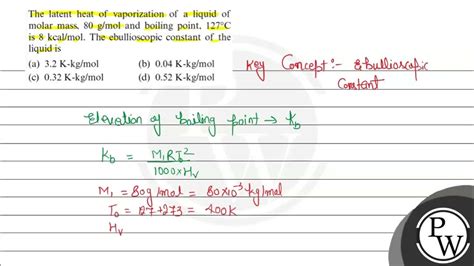 The latent heat of vaporization of a liquid of
molar mass, 80 g/mol and boiling point, 127°C
is 8 kcal/mol. The ebullioscopic constant of the
liquid is
(a) 3.2 K-kg/mol (b) 0.04 K-kg/mol
(c) 0.32 K-kg/mol (d) 0.52 K-kg/mol
Key Concept:- Ebullioscopic
Constant
Elevation of boiling point → Kb
Kb = M₁RTb²
1000×Hv
M₁ = 80g/mol = 80×10⁻³ kg/mol
To = 127+273 = 400K
Hv
P
W
PW